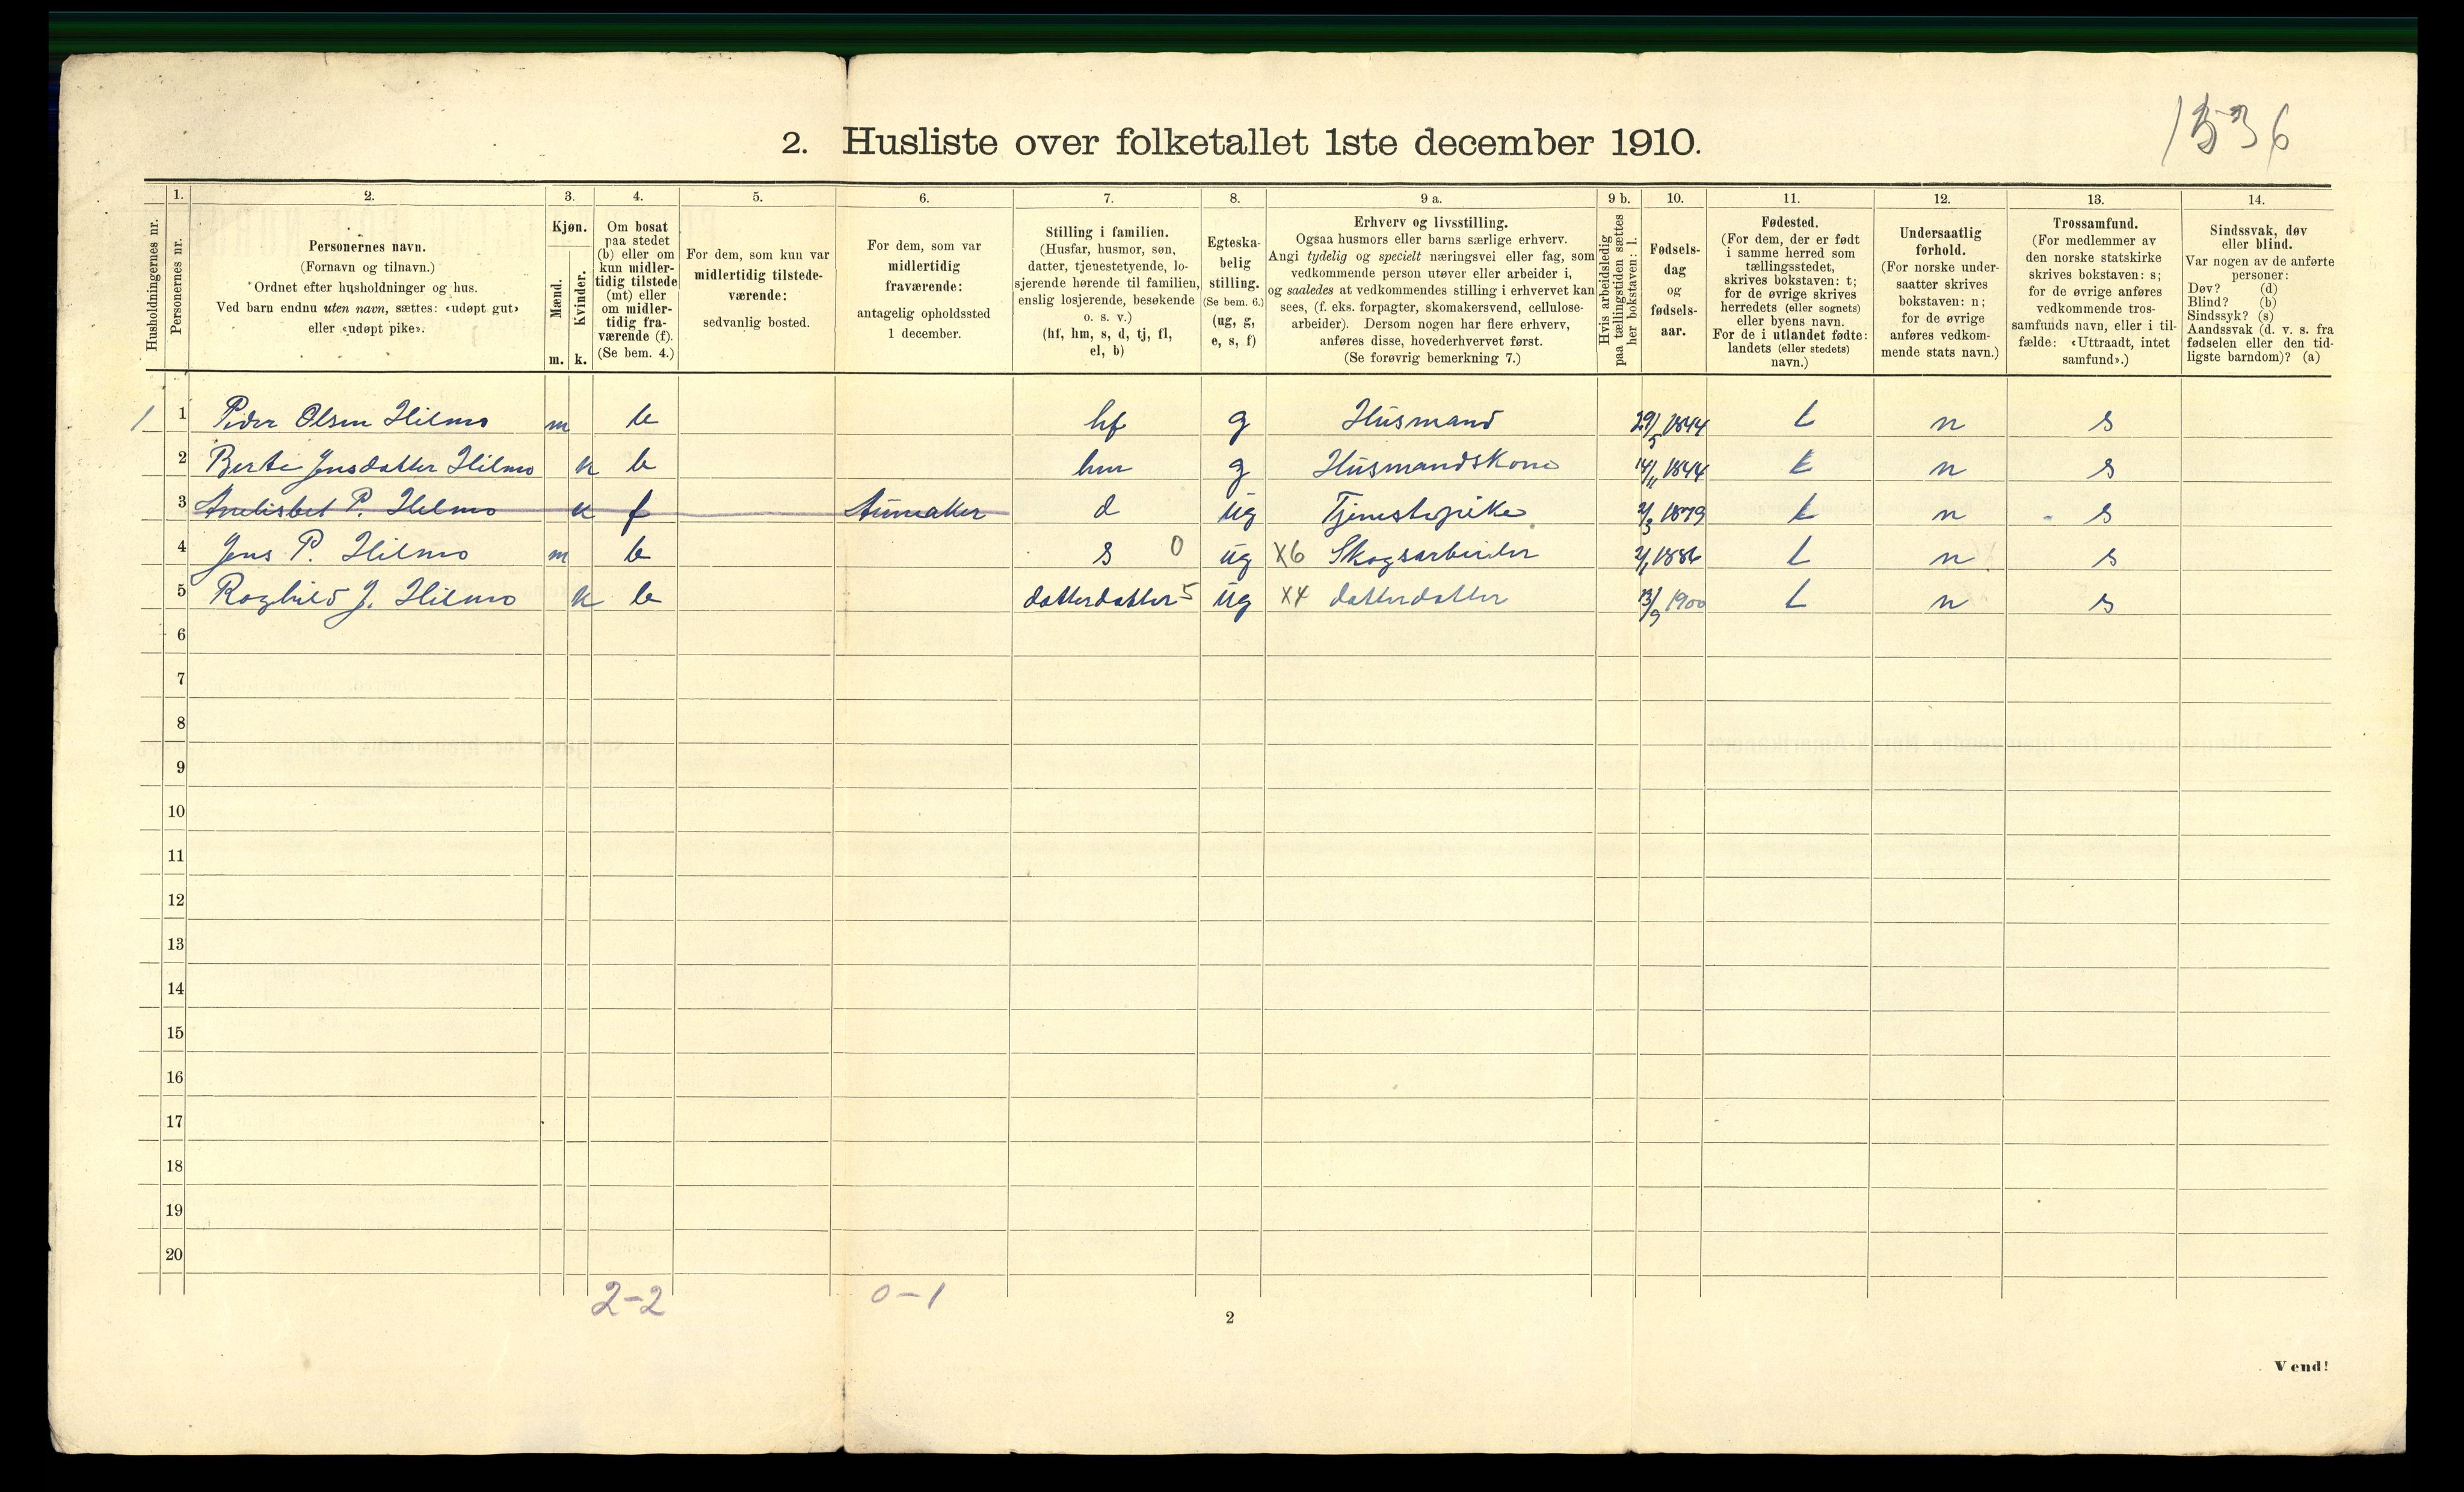 1536
2. Husliste over folketallet 1ste december 1910.
Husholdningernes nr.
1. Personernes nr.
2.
Personernes navn.
(Fornavn og tilnavn.)
Ordnet efter husholdninger og hus.
Ved barn endnu uten navn, sættes: «udøpt gut»
eller «udøpt pike».
3.
Kjøn.
Mænd.
Kvinder.
m. k.
4.
Om bosat
paa stedet
(b) eller om
kun midler-
tidig tilstede
(mt) eller
om midler-
tidig fra-
værende (f).
(Se bem. 4.)
5.
For dem, som kun var
midlertidig tilstede-
værende:
sedvanlig bosted.
6.
For dem, som var
midlertidig
fraværende:
antagelig opholdssted
1 december.
7.
Stilling i familien.
(Husfar, husmor, søn,
datter, tjenestetyende, lo-
sjerende hørende til familien,
enslig losjerende, besøkende
o. s. v.)
(hf, hm, s, d, tj, fl,
el, b)
8.
Egteska-
belig
stilling.
(Se bem. 6.)
(ug, g,
e, s, f)
9 a.
Erhverv og livsstilling.
Ogsaa husmors eller barns særlige erhverv.
Angi tydelig og specielt næringsvei eller fag, som
vedkommende person utøver eller arbeider i,
og saaledes at vedkommendes stilling i erhvervet kan
sees, (f. eks. forpagter, skomakersvend, cellulose-
arbeider). Dersom nogen har flere erhverv,
anføres disse, hovederhvervet først.
(Se forøvrig bemerkning 7.)
9 b.
Hvis arbeidsledig
paa tællingstiden sættes
her bokstaven: l.
10.
Fødsels-
dag
og
fødsels-
aar.
11.
Fødested.
(For dem, der er født
i samme herred som
tællingsstedet,
skrives bokstaven: t;
for de øvrige skrives
herredets (eller sognets)
eller byens navn.
For de i utlandet fødte:
landets (eller stedets)
navn.)
12.
Undersaatlig
forhold.
(For norske under-
saatter skrives
bokstaven: n;
for de øvrige
anføres vedkom-
mende stats navn.)
13.
Trossamfund.
(For medlemmer av
den norske statskirke
skrives bokstaven: s;
for de øvrige anføres
vedkommende tros-
samfunds navn, eller i til-
fælde: «Uttraadt, intet
samfund».)
14.
Sindssvak, døv
eller blind.
Var nogen av de anførte
personer:
Døv? (d)
Blind? (b)
Sindssyk? (s)
Aandssvak (d. v. s. fra
fødselen eller den tid-
ligste barndom)? (a)
1 1 Peder Olsen Hilmo m b hf g Husmand 29/5 1844 t n s
2 Berte Jensdatter Hilmo k b hm g Husmandskone 14/11 1844 t n s
3 Anelisbet P. Hilmo k f d ug Tjenestepike 2/3 1879 t n s
4 Jens P. Hilmo m b s 0 ug X6 Skogsarbeider 2/1 1886 t n s
5 Raghild J. Hilmo k b datterdatter 5 ug X4 datterdatter 13/9 1900 t n s
6
7
8
9
10
11
12
13
14
15
16
17
18
19
20
2-2 0-1
2
Vend!